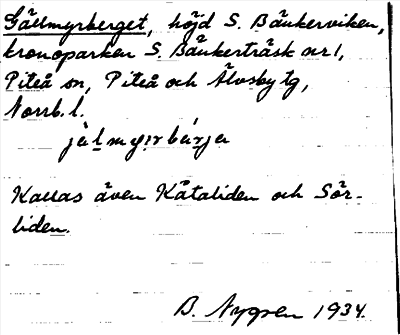 Sällmyrberget, höjd S. Bänkerviken,
kronoparken S. Bänkerträsk nr 1,
Piteå sn, Piteå och Älvsby tg,
Norrb. l.
Kallas även Kåtaliden och Sör-
liden.
B. Nygren 1934.